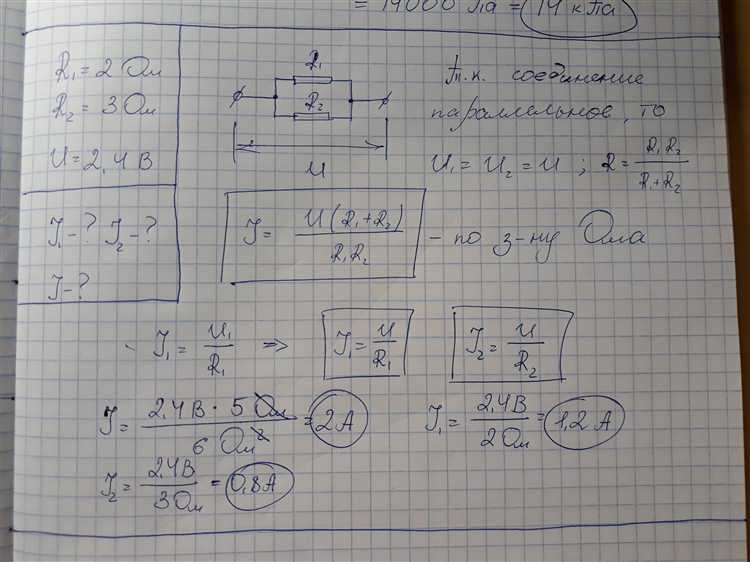 = 14000 Па = 14 кПа
R₁ = 2 Ом
R₂ = 3 Ом
U = 2,4 В
I₁ - ? I₂ - ?
I - ?
R₁
R₂
U
т.к. соединение
параллельное, то
U₁ = U₂ = U ; R = R₁R₂ / R₁+R₂
I = U(R₁+R₂) / R₁R₂ - по з-ну Ома
I₁ = U₁ / R₁ => I₁ = U / R₁ I₂ = U / R₂
I = 2,4 В · 5 Ом / 6 Ом² = 2 А I₁ = 2,4 В / 2 Ом = 1,2 А
I₂ = 2,4 В / 3 Ом = 0,8 А